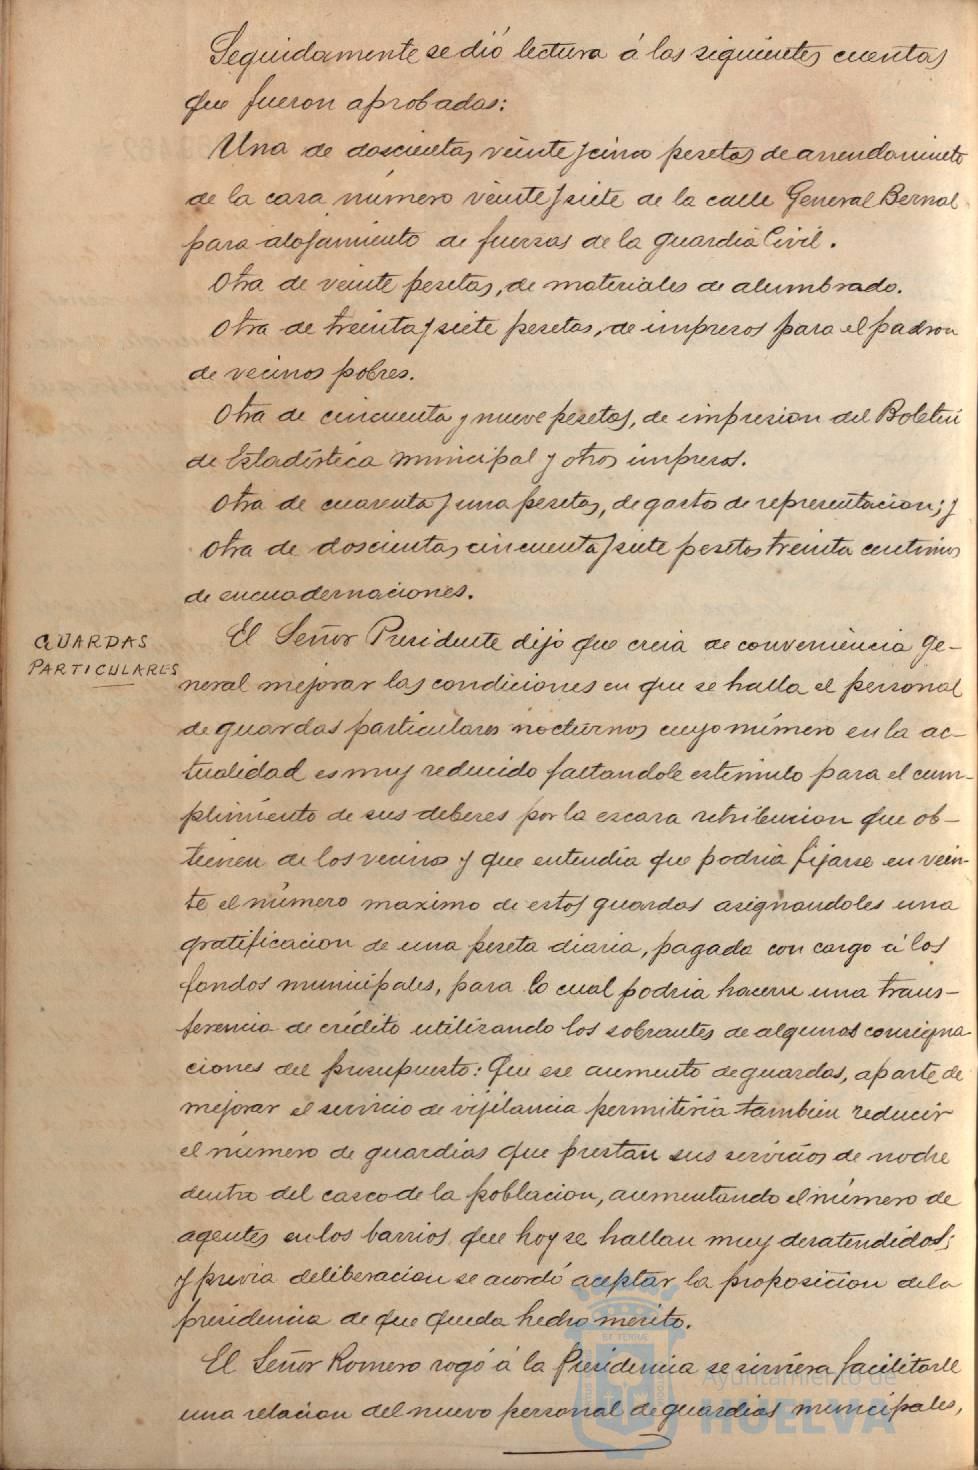 Seguidamente se dió lectura á las siguientes cuentas
que fueron aprobadas:
Una de doscientas veinte y cinco pesetas de arrendamineto
de la casa número veinte y siete de la calle General Bernal
para alojamiento de fuerzas de la guardia Civil.
Otra de veinte pesetas, de materiales de alumbrado.
Otra de treinta y siete pesetas, de impresos para el padron
de vecinos pobres.
Otra de cincuenta y nueve pesetas, de impresion del Boletin
de Estadística municipal y otros impresos.
Otra de cuarenta y una pesetas, de gasto de representacion; y
Otra de doscientas cincuenta y siete pesetas treinta centimos
de encuadernaciones.
GUARDAS
PARTICULARES
El Señor Presidente dijo que creia de conveniencia ge-
neral mejorar las condiciones en que se halla el personal
de guardas particulares nocturnos cuyo número en la ac-
tualidad es muy reducido faltandole estimulo para el cum-
plimiento de sus deberes por la escasa retribucion que ob-
tienen de los vecinos y que entendia que podria fijarse en vein-
te el número maximo de estos guardas asignandoles una
gratificacion de una peseta diaria, pagada con cargo á los
fondos municipales, para lo cual podria hacerse una trans-
ferencia de crédito utilizando los sobrantes de algunas consigna-
ciones del presupuesto: Que ese aumento de guardas, aparte de
mejorar el servicio de vijilancia permitiria tambien reducir
el número de guardias que prestan sus servicios de noche
dentro del casco de la poblacion, aumentando el número de
agentes en los barrios que hoy se hallan muy desatendidos;
y previa deliberacion se acordó aceptar la proposicion de la
presidencia de que queda hecho mérito.
El Señor Romero rogó á la Presidencia se sirviera facilitarle
una relacion del nuevo personal de guardias municipales,
Ayuntamiento de
HUELVA